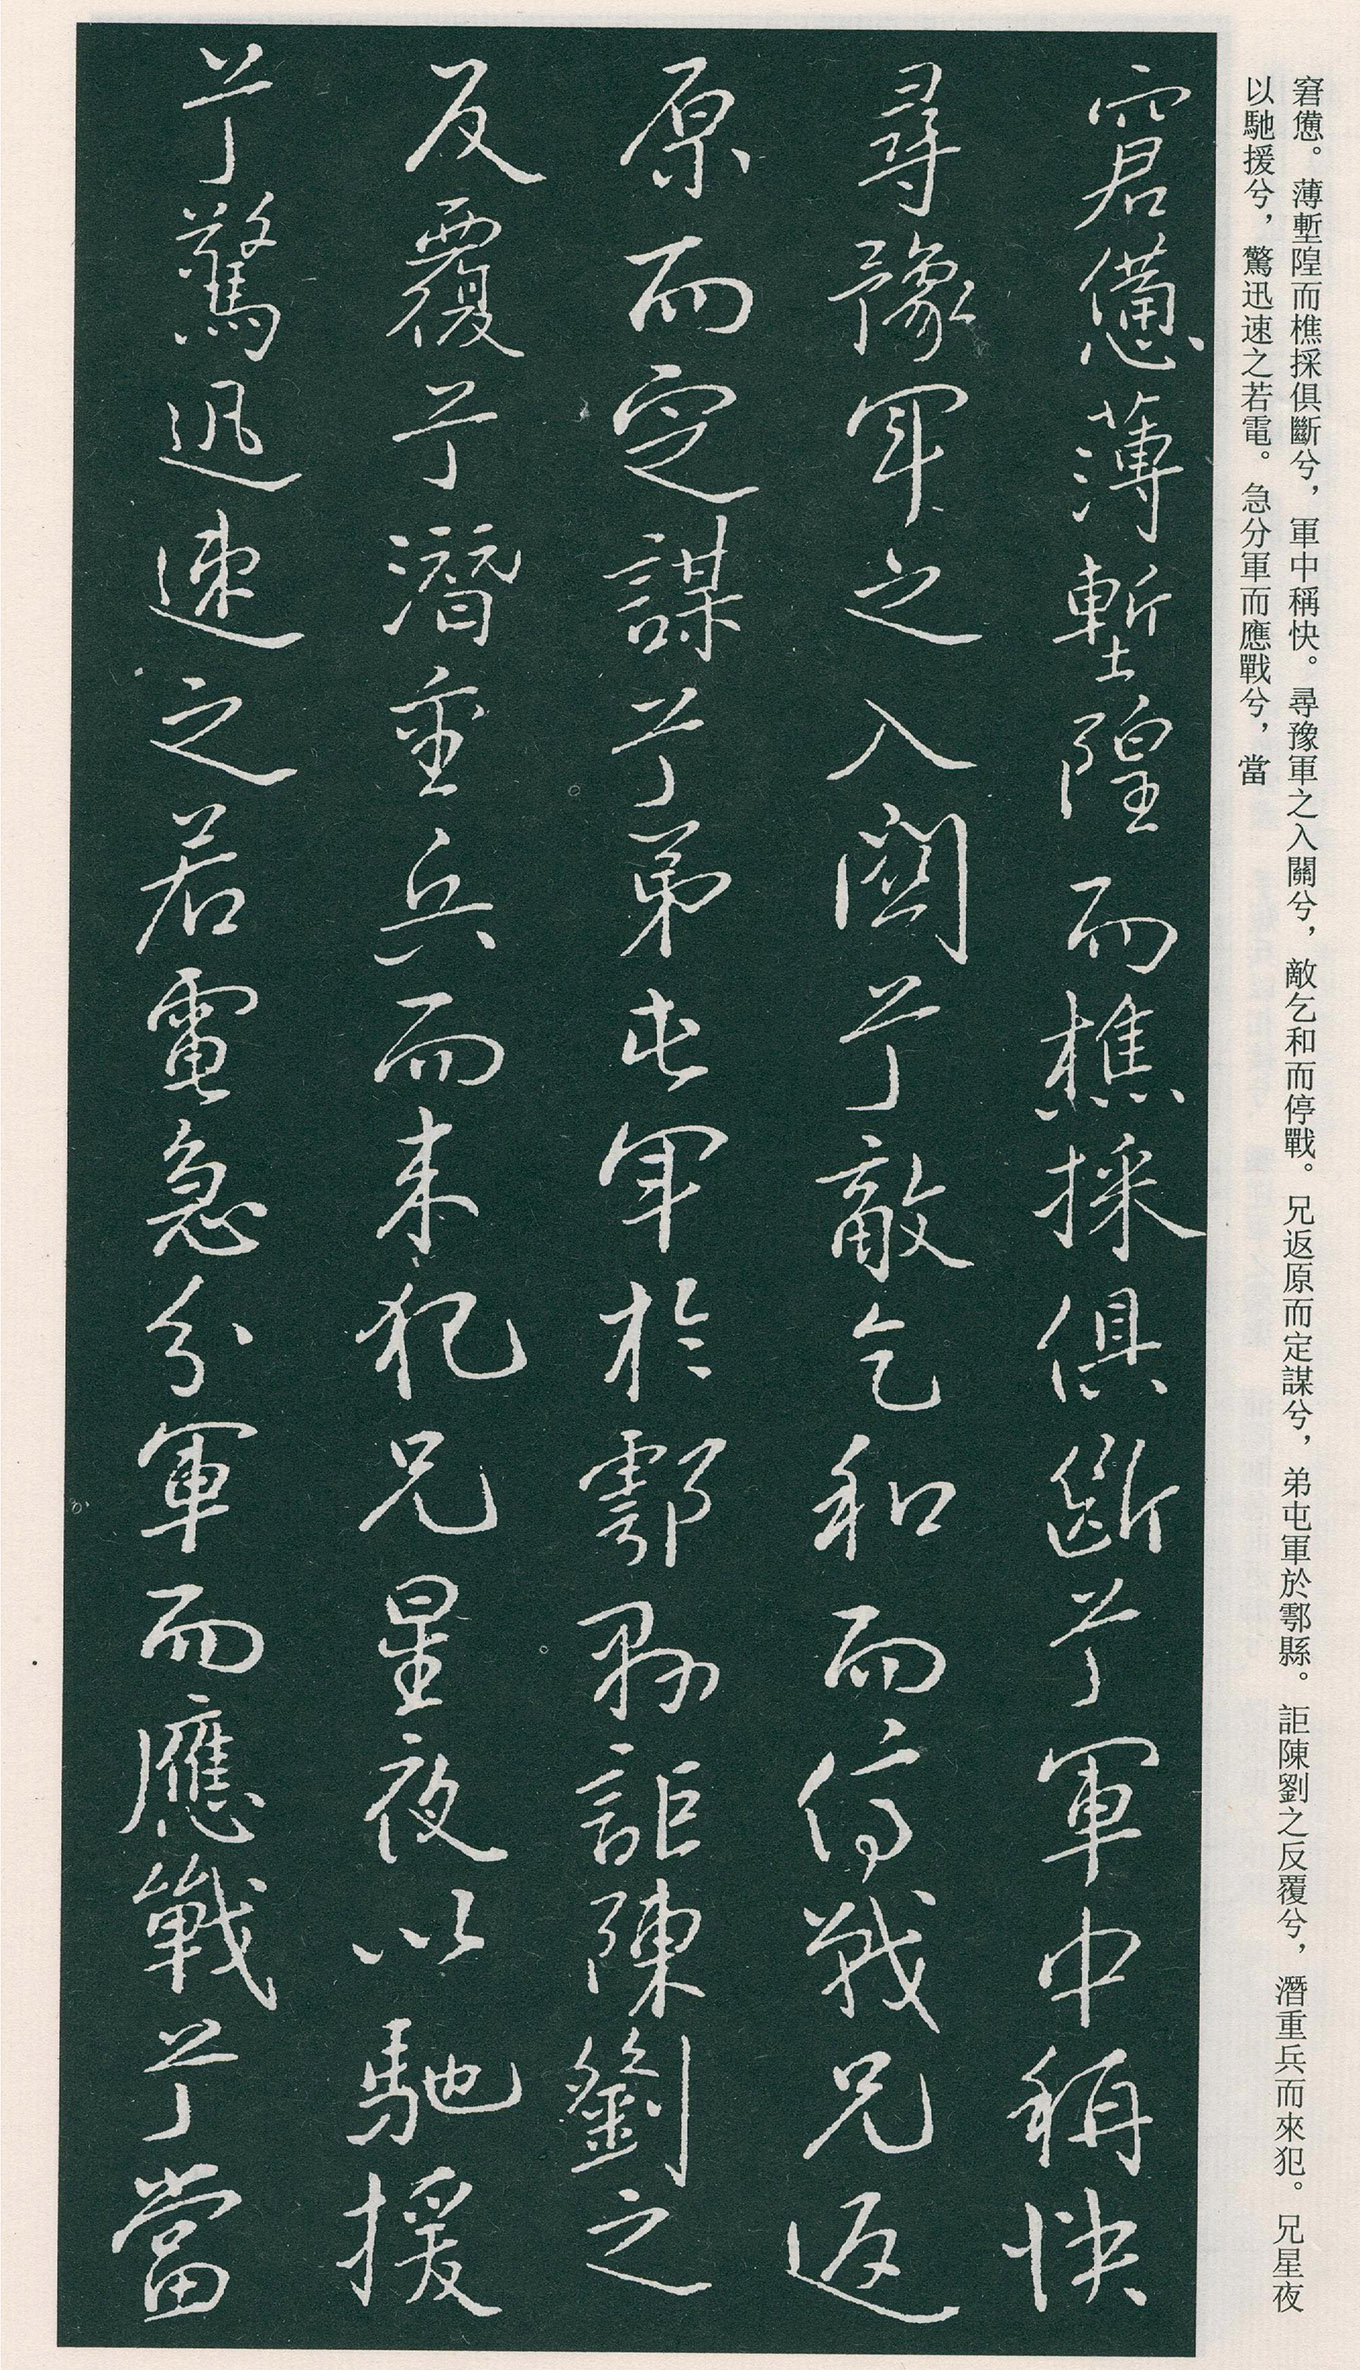 窘憊。薄塹隍而樵採俱斷兮，軍中稱快。尋豫軍之入關兮，敵乞和而停戰。兄返原而定謀兮，弟屯軍於鄠縣。詎陳劉之反覆兮，潛重兵而來犯。兄星夜
以馳援兮，驚迅速之若電。急分軍而應戰兮，當
窘憊薄塹隍而樵採俱斷兮軍中稱快
尋豫軍之入關兮敵乞和而停戰兄返
原而定謀兮弟屯軍於鄠縣詎陳劉之
反覆兮潛重兵而来犯兄星夜以馳援
兮驚迅速之若電急分軍而應戰兮當